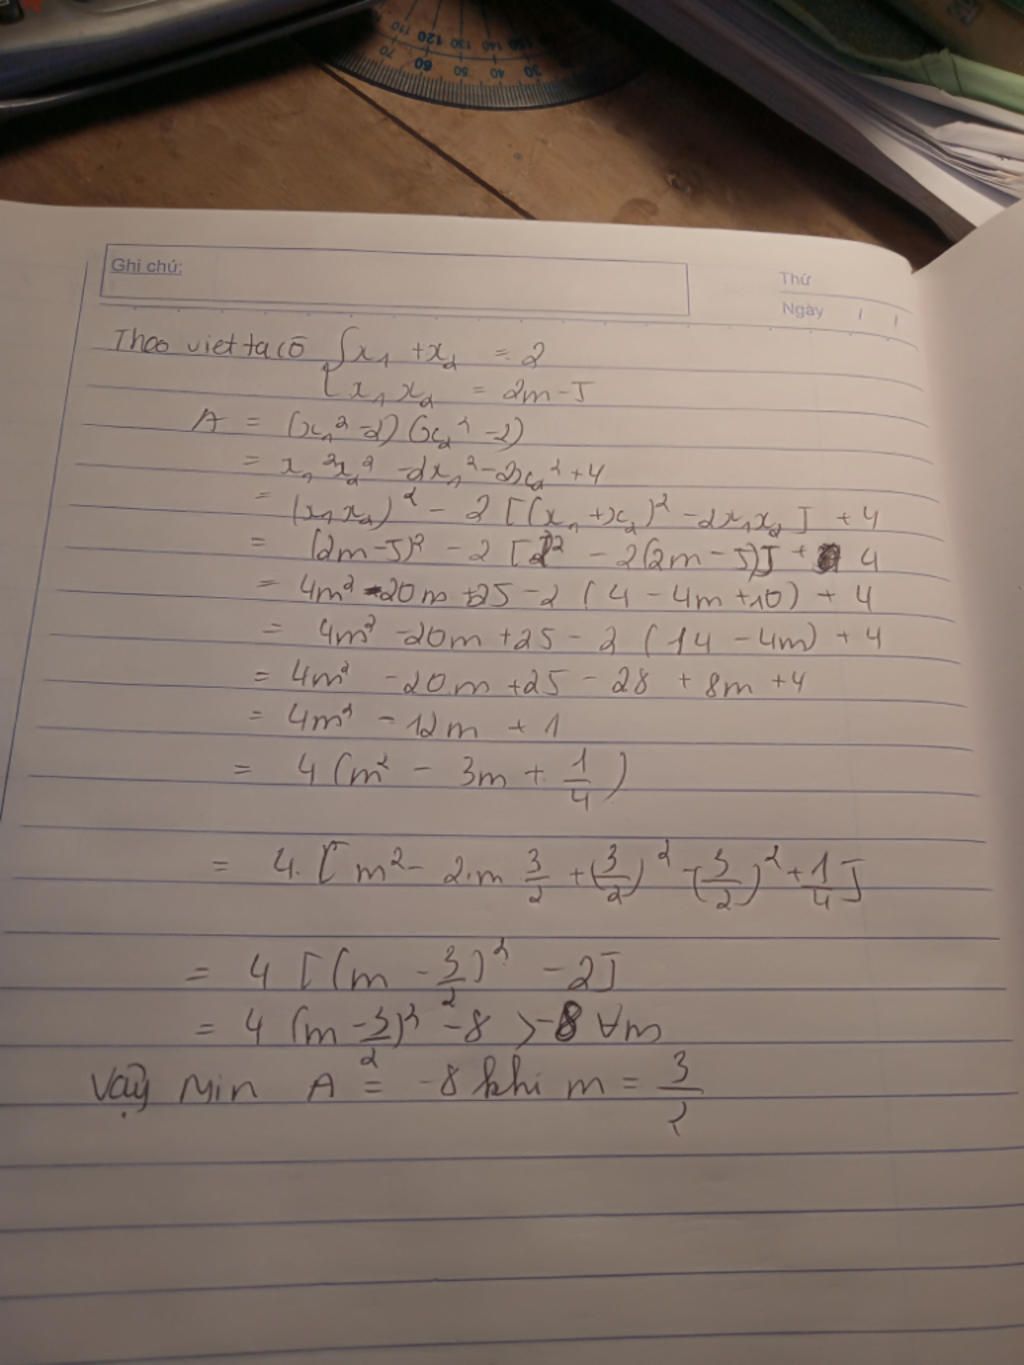 Ghi chú:
Thứ
Ngày / /
Theo viet ta có { x₁ + x₂ = 2
{ x₁ x₂ = 2m - 5
A = (x₁² - 2)(x₂² - 2)
= x₁²x₂² - 2x₁² - 2x₂² + 4
= (x₁x₂)² - 2 [(x₁ + x₂)² - 2x₁x₂] + 4
= (2m - 5)² - 2 [2² - 2(2m - 5)] + 4
= 4m² - 20m + 25 - 2 (4 - 4m + 10) + 4
= 4m² - 20m + 25 - 2 (14 - 4m) + 4
= 4m² - 20m + 25 - 28 + 8m + 4
= 4m² - 12m + 1
= 4 (m² - 3m + 1/4)
= 4. [m² - 2.m 3/2 + (3/2)² - (3/2)² + 1/4]
= 4 [(m - 3/2)² - 2]
= 4 (m - 3/2)² - 8 > -8 ∀m
Vậy Min A = -8 khi m = 3/2